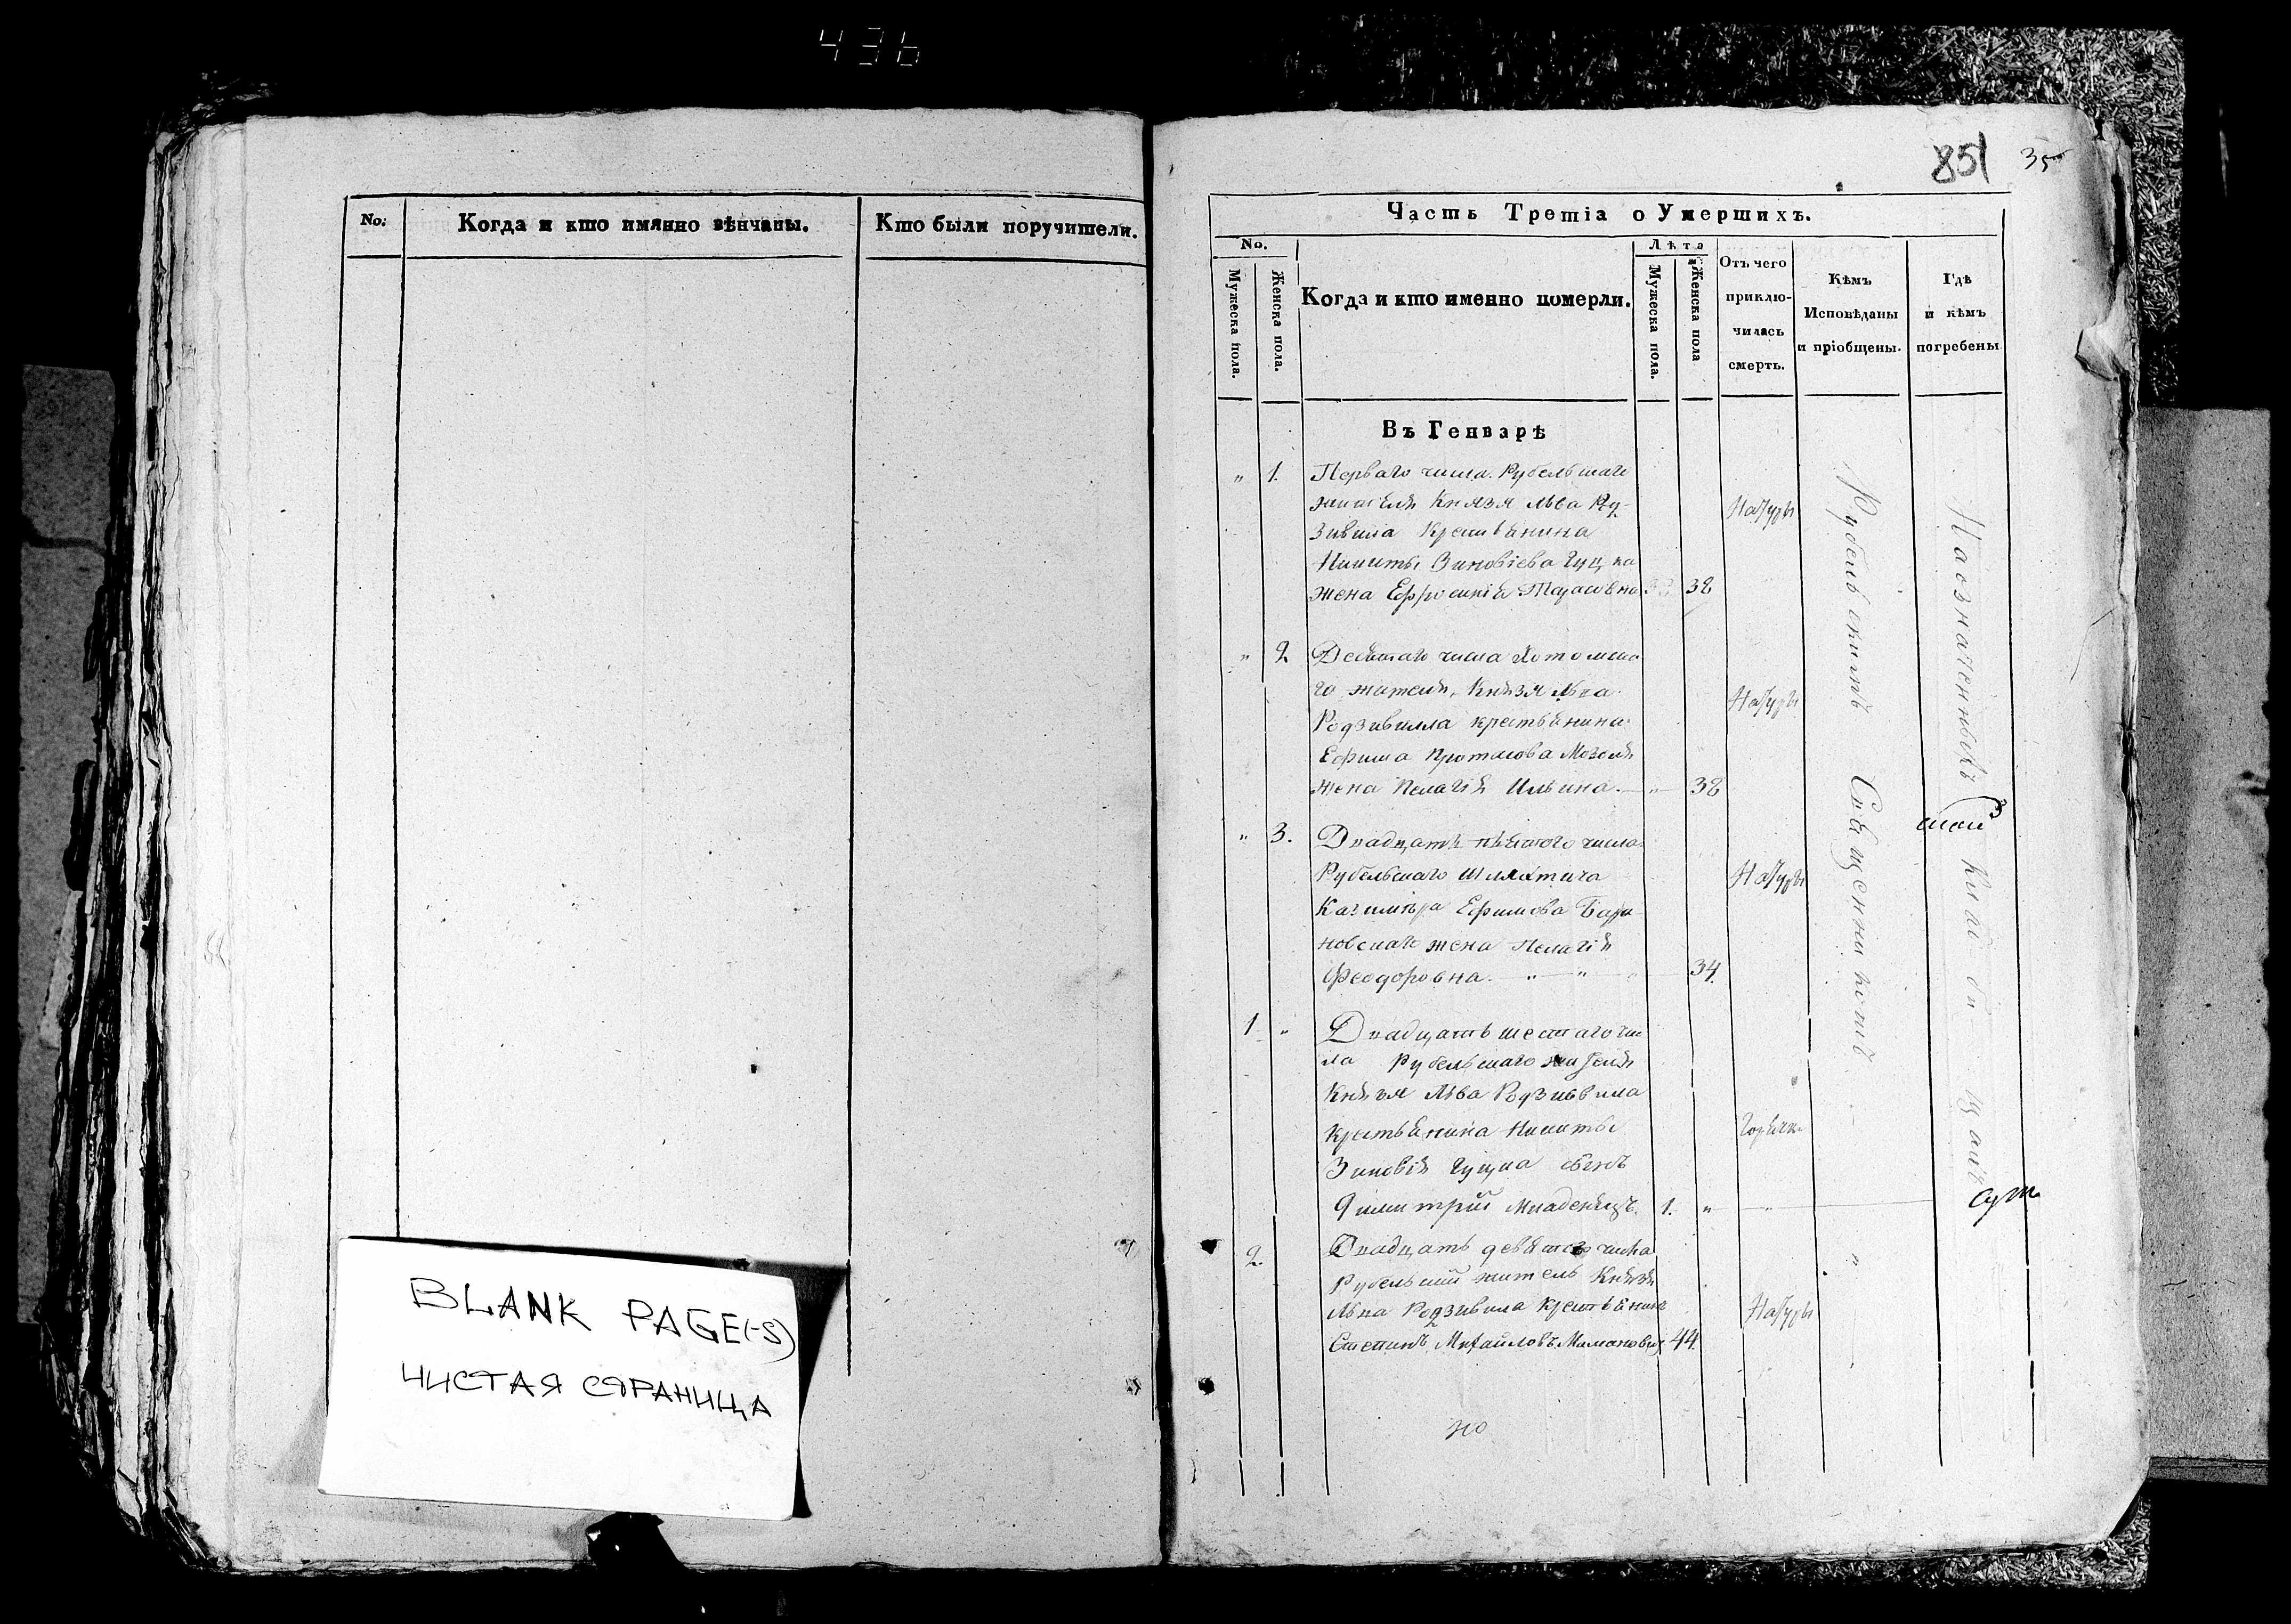 436
No.
Когда и кто имянно вѣнчаны.
Кто были поручители.
BLANK PAGE(-S)
ЧИСТАЯ СТРАНИЦА
851 35
Часть Третіа о Умершихъ.
No.
Мужеска пола.
Женска пола.
Когда и кто именно померли.
Лѣта
Мужеска пола.
Женска пола
Отъ чего
приклю-
чилась
смерть.
Кѣмъ
Исповѣданы
и пріобщены.
Гдѣ
и кѣмъ
погребены.
Въ Генварѣ
" 1. Перваго числа Рубельскаго
жителя Князя Льва Рад-
зивила Крестьянина
Никиты Зиновіева Гуцка
жена Ефросинія Тарасовна 38
Натуры
" 2 Десятаго числа Хотомска-
го жителя, Князя Льва
Родзивилла крестьянина
Ефима Протасова Мозоля
жена Пелагія Ильина. " 38
Натуры
" 3. Двадцать пятого числа
Рубельскаго шляхтича
Казимѣра Ефимова Бара-
новскаго жена Пелагія
Феодоровна. " " 34.
Натуры
1 " Двадцать шестаго чис
ла Рубельскаго жителя
Князя Льва Родзивила
Крестьянина Никиты
Зиновія Гуцка сынъ
Димитрій Младенецъ. 1. " "
Горячки
2. Двадцать девятого числа
Рубельскій житель Князя
Льва Родзивила Крестьянинъ
Степанъ Михайловъ 44.
Натуры
Рубельскимъ Священникомъ
"
На означенныхъ Кладбищахъ